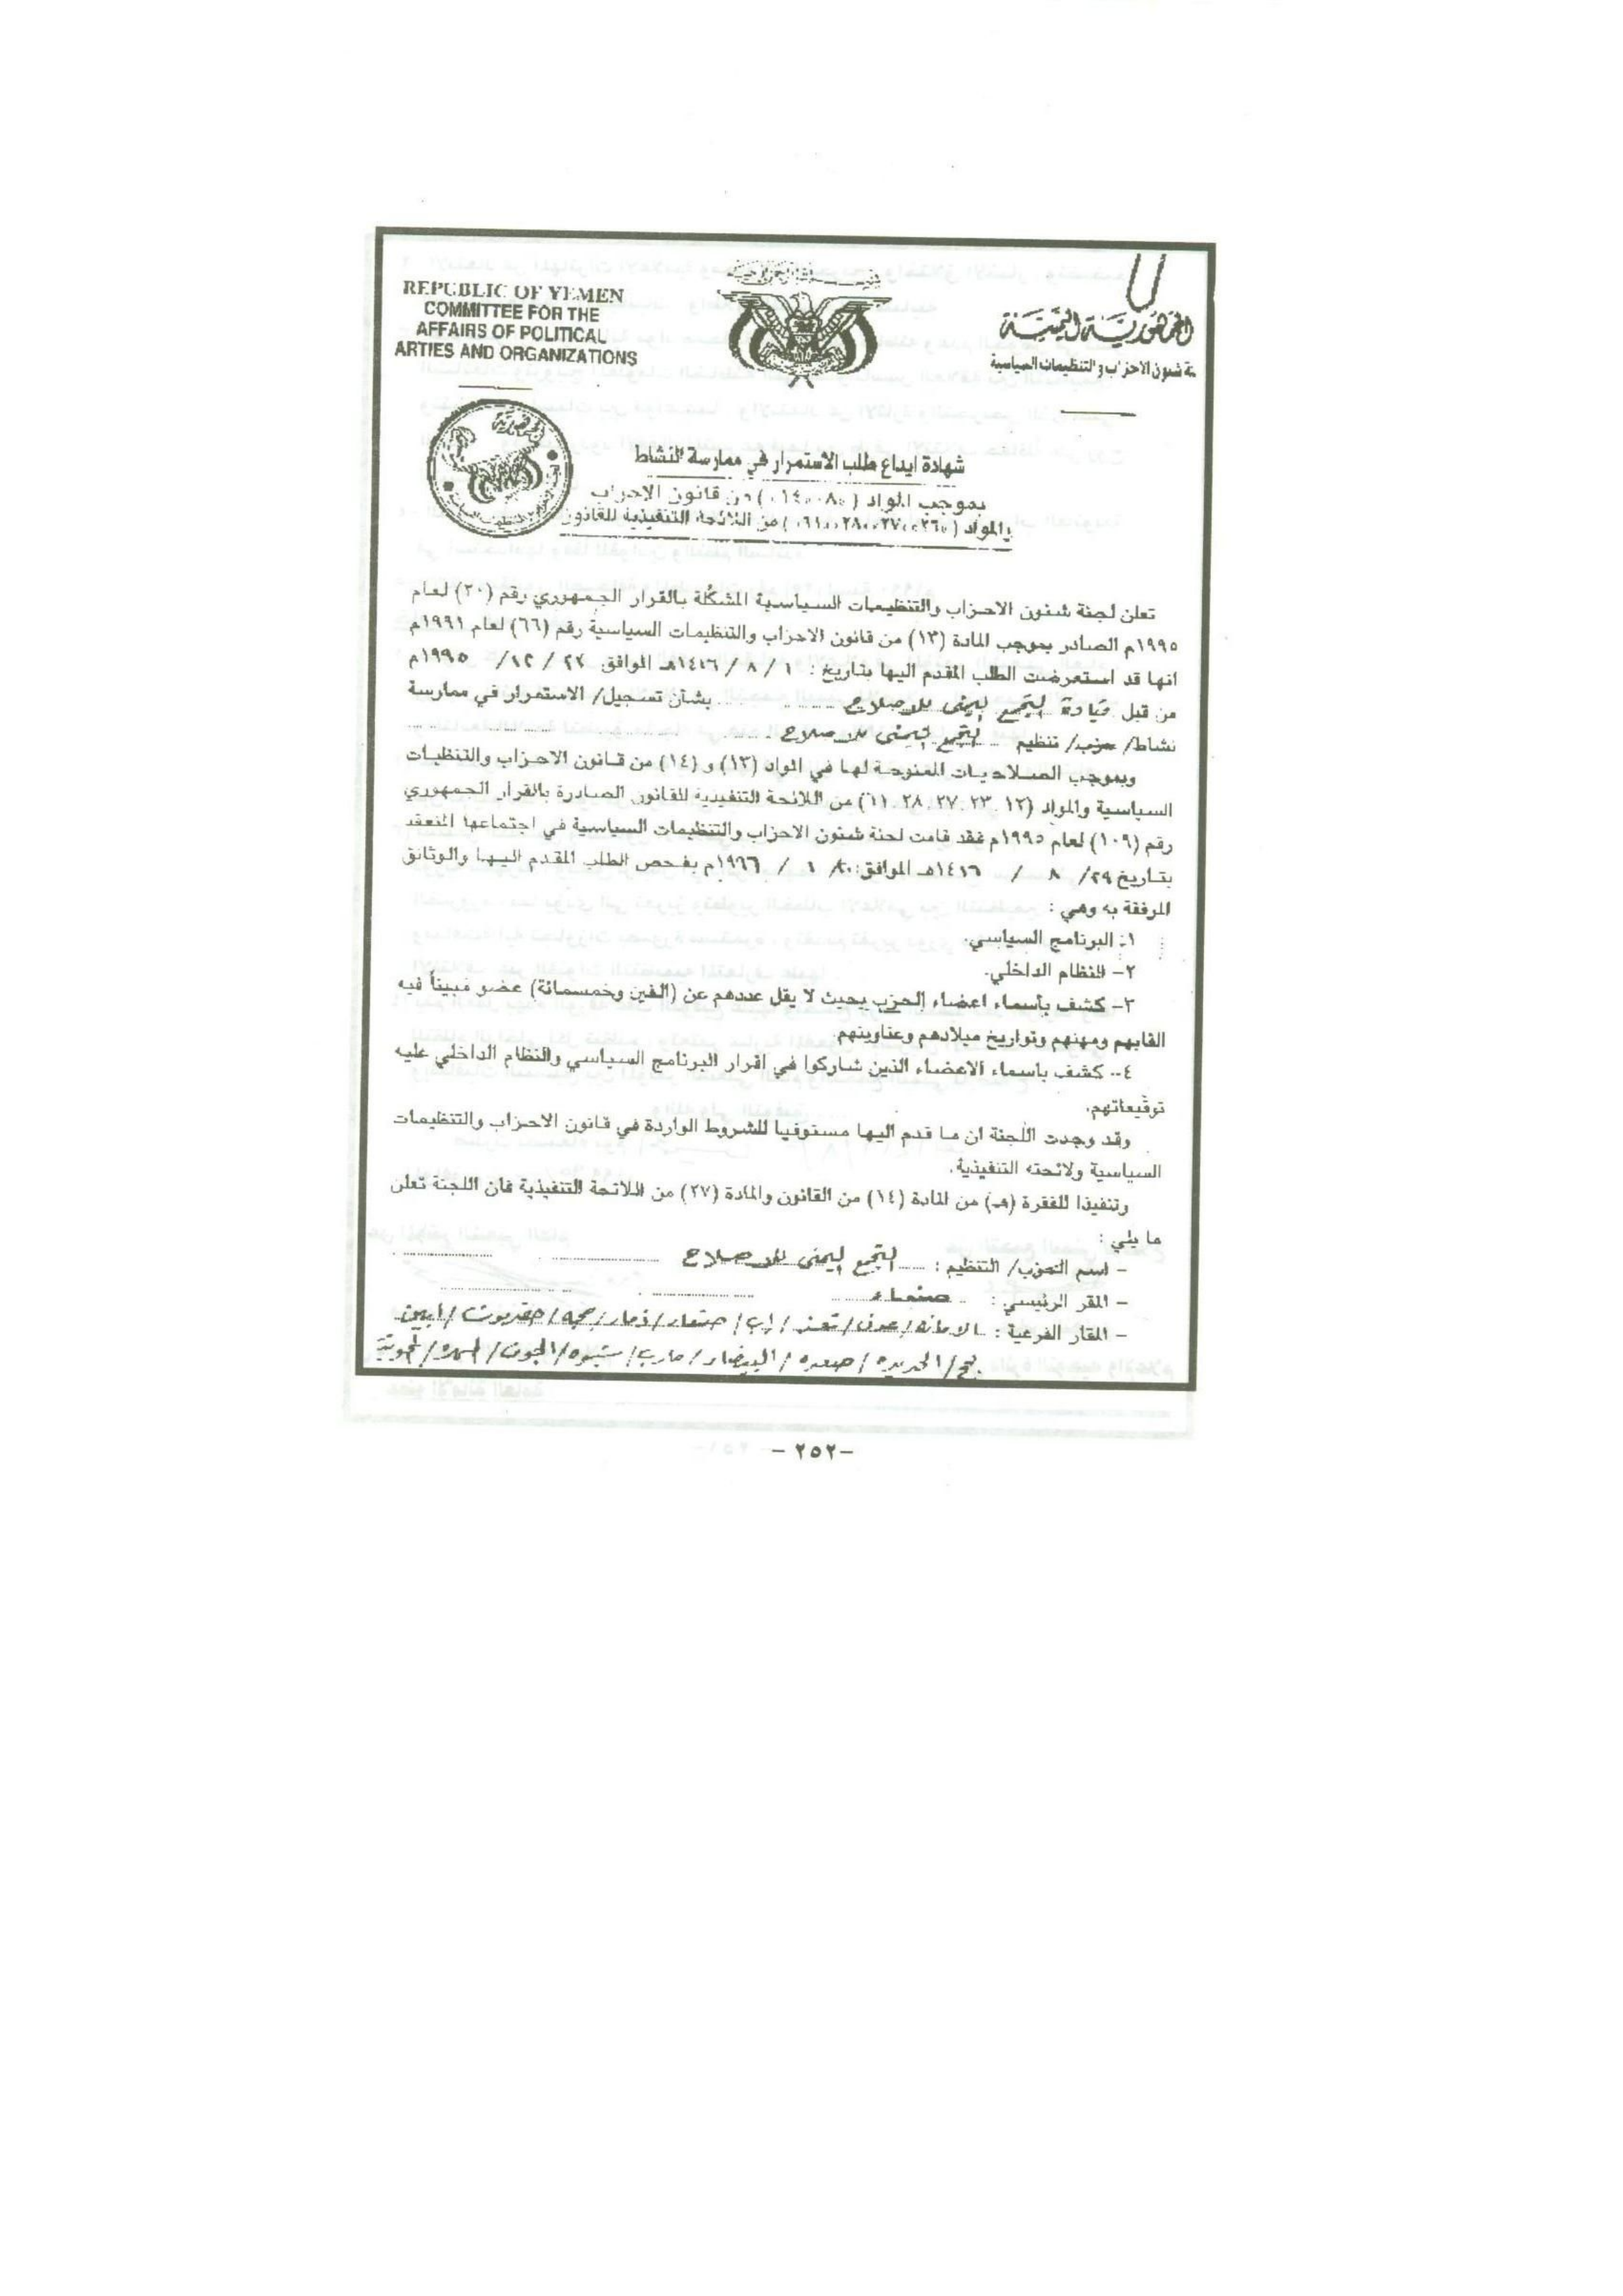 REPUBLIC OF YEMEN
COMMITTEE FOR THE
AFFAIRS OF POLITICAL
ARTIES AND ORGANIZATIONS
بسم الله الرحمن الرحيم
الجمهورية اليمنية
ة شئون الاحزاب والتنظيمات السياسية
شهادة ايداع طلب الاستمرار في ممارسة النشاط
بموجب المواد من قانون الاحزاب
والمواد من اللائحة التنفيذية للقانون
تعلن لجنة شئون الاحزاب والتنظيمات السياسية المشكلة بالقرار الجمهوري رقم (٣٠) لعام
١٩٩٥م الصادر بموجب المادة (١٣) من قانون الاحزاب والتنظيمات السياسية رقم (٦٦) لعام ١٩٩١م
انها قد استعرضت الطلب المقدم اليها بتاريخ : ١ / ٨ / ١٤١٦هـ الموافق ٢٣ / ١٢ / ١٩٩٥م
من قبل قيادة التجمع اليمني للاصلاح بشأن تسجيل/ الاستمرار في ممارسة
نشاط/ حزب/ تنظيم التجمع اليمني للاصلاح
وبموجب الصلاحيات الممنوحة لها في المواد (١٣) و (١٤) من قانون الاحزاب والتنظيمات
السياسية والمواد (١٢، ٢٣، ٢٧، ٢٨، ٦١) من اللائحة التنفيذية للقانون الصادرة بالقرار الجمهوري
رقم (١٠٩) لعام ١٩٩٥م فقد قامت لجنة شئون الاحزاب والتنظيمات السياسية في اجتماعها المنعقد
بتاريخ ٢٩/ ٨ / ١٤١٦هـ الموافق: / ١ / ١٩٩٦م بفحص الطلب المقدم اليها والوثائق
المرفقة به وهي :
١- البرنامج السياسي.
٢- النظام الداخلي.
٣- كشف بأسماء اعضاء الحزب بحيث لا يقل عددهم عن (الفين وخمسمائة) عضو مبيناً فيه
القابهم ومهنهم وتواريخ ميلادهم وعناوينهم.
٤- كشف باسماء الاعضاء الذين شاركوا في اقرار البرنامج السياسي والنظام الداخلي عليه
توقيعاتهم.
وقد وجدت اللجنة ان ما قدم اليها مستوفيا للشروط الواردة في قانون الاحزاب والتنظيمات
السياسية ولائحته التنفيذية.
وتنفيذا للفقرة (هـ) من المادة (١٤) من القانون والمادة (٢٧) من اللائحة التنفيذية فان اللجنة تعلن
ما يلي :
- اسم الحزب/ التنظيم : التجمع اليمني للاصلاح
- المقر الرئيسي : صنعاء
- المقار الفرعية : الامانة/عدن/تعز/إب/صنعاء/ذمار/حجه/حضرموت/أبين
لحج/الحديده/صعده/البيضاء/مارب/شبوه/الجوف/المهره/المحويت
-٢٥٢-